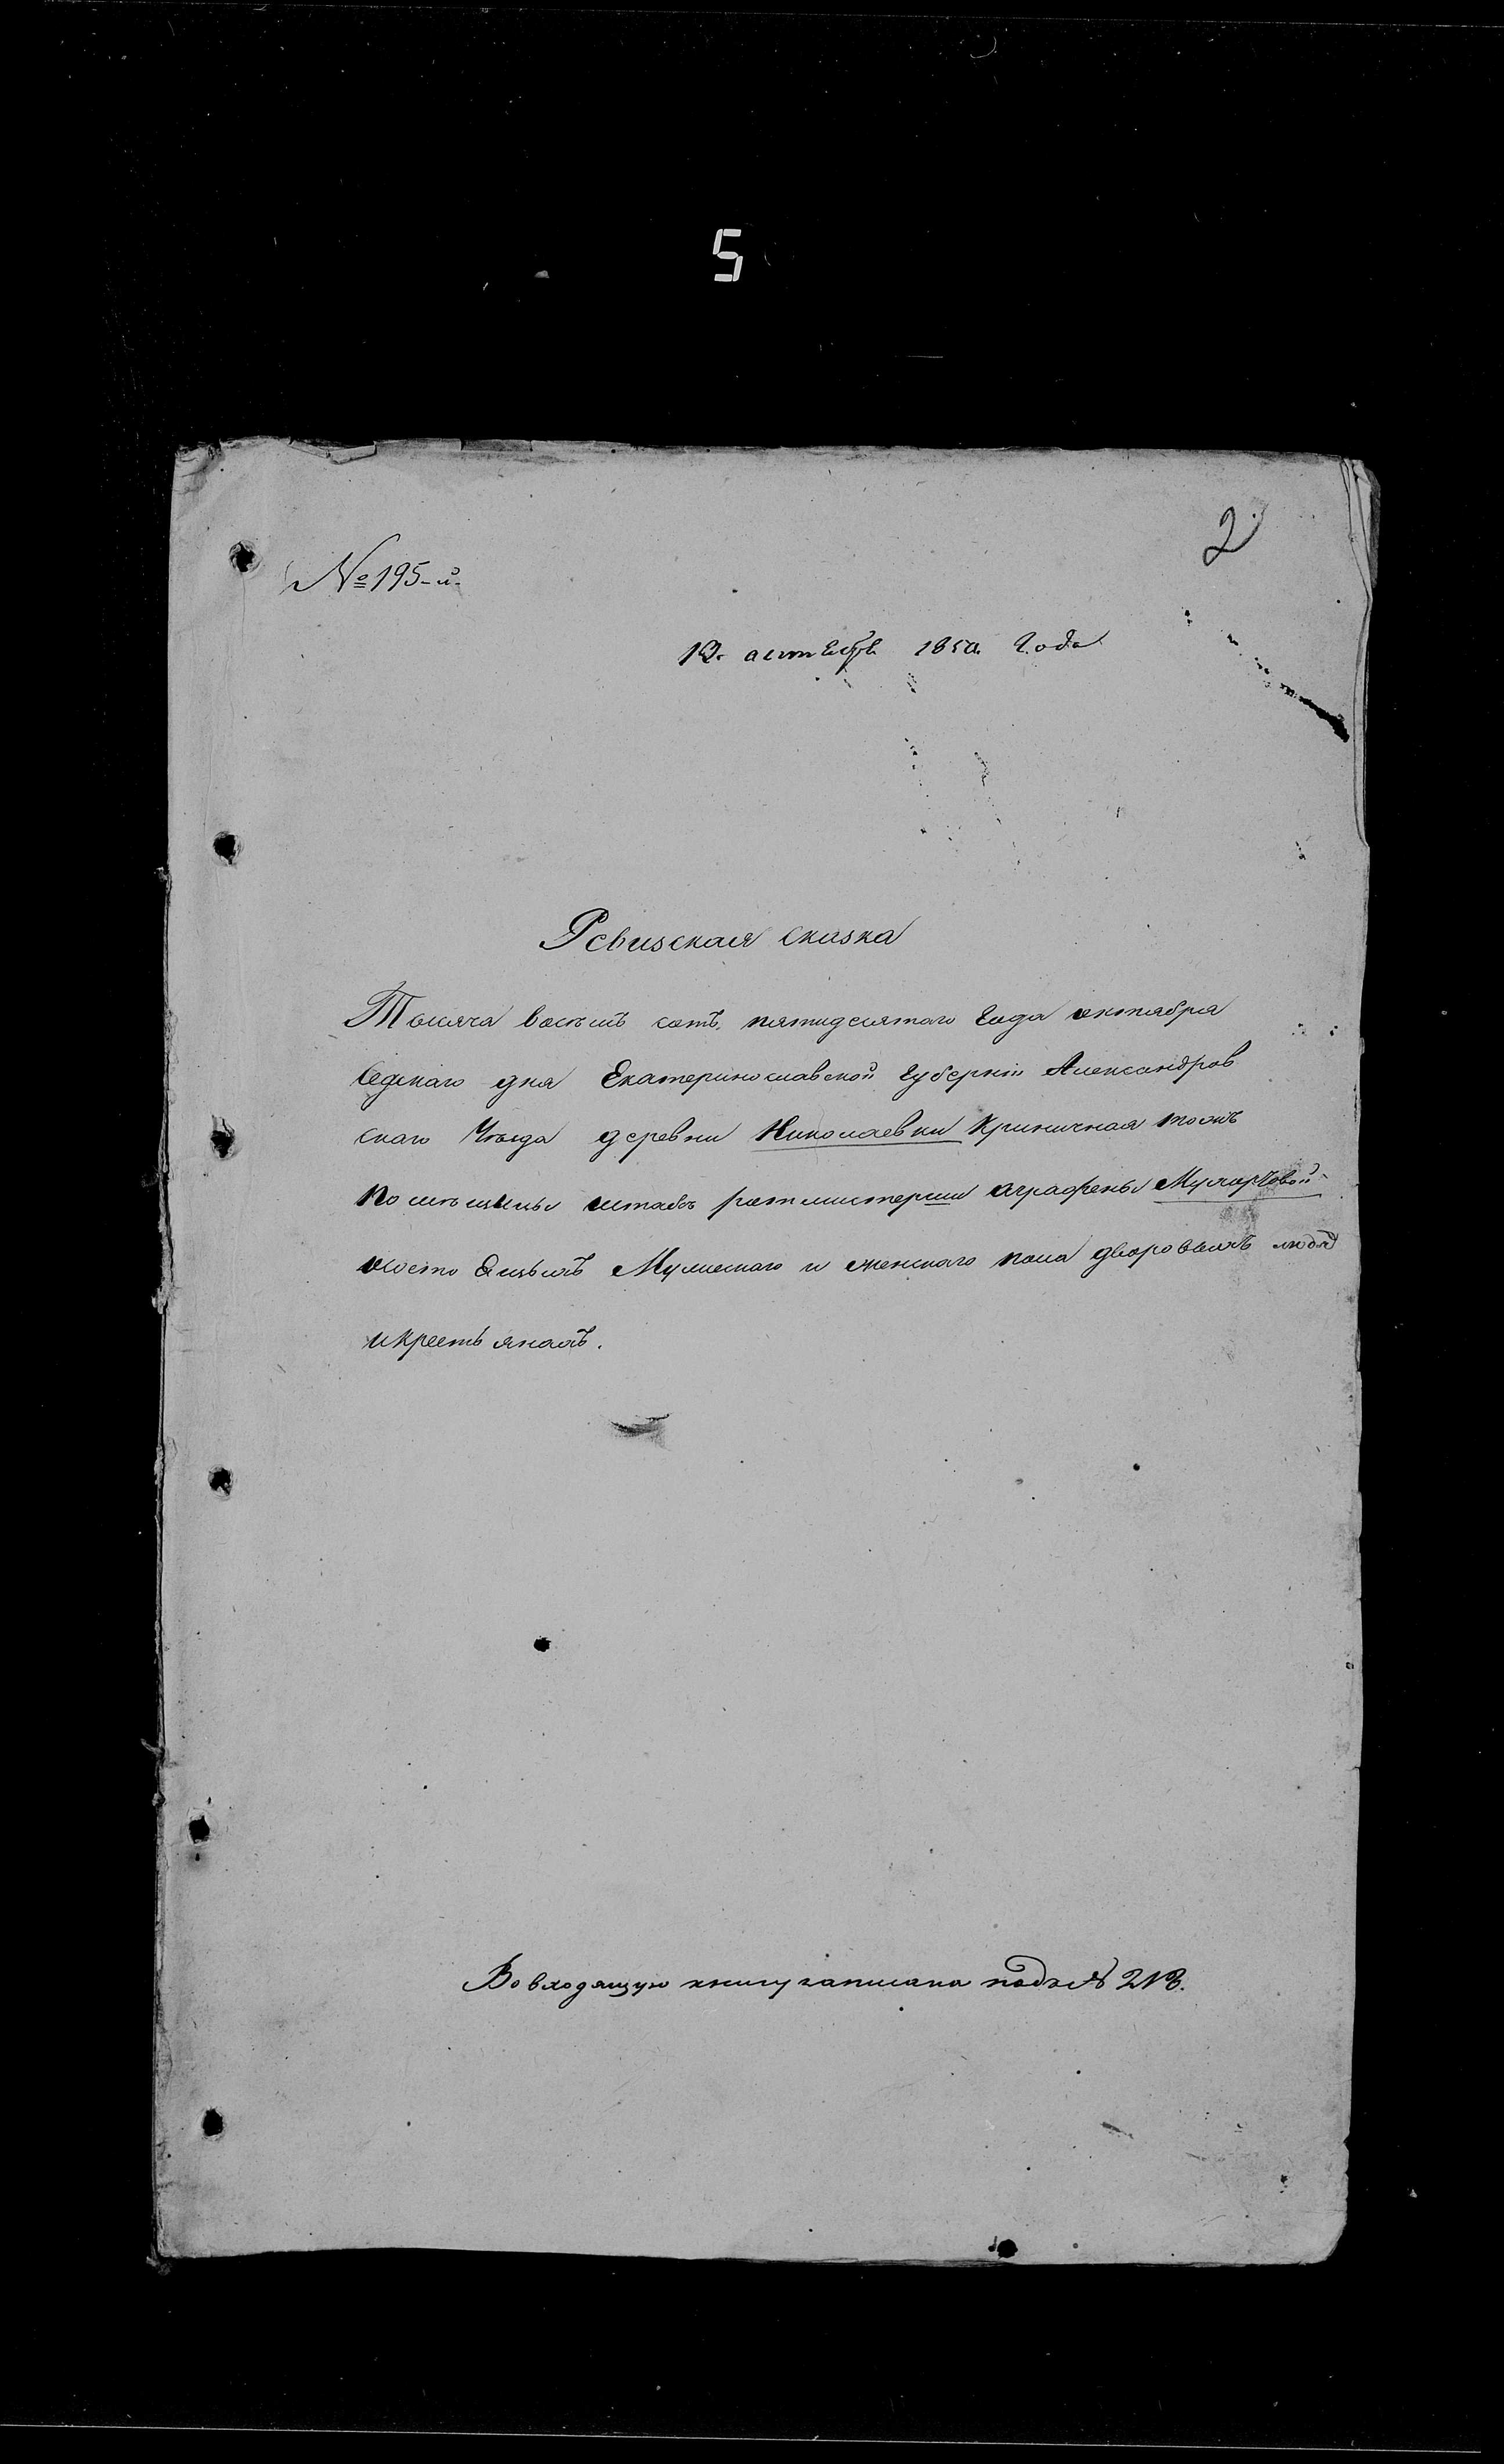 5
2
№ 195-й.
1850 Года
Ревизская сказка
Тысяча восемь сотъ пятидесятаго Года октября
дня Екатеринославской Губерніи Александров
скаго Уѣзда деревни Николаевки Криничная тожъ
Помѣщицы штабъ ротмистерши аграфены
состоящихъ Мужескаго и женскаго пола дворовыхъ людяхъ
и крестьянахъ.
Во входящую книгу записана подъ № 213.